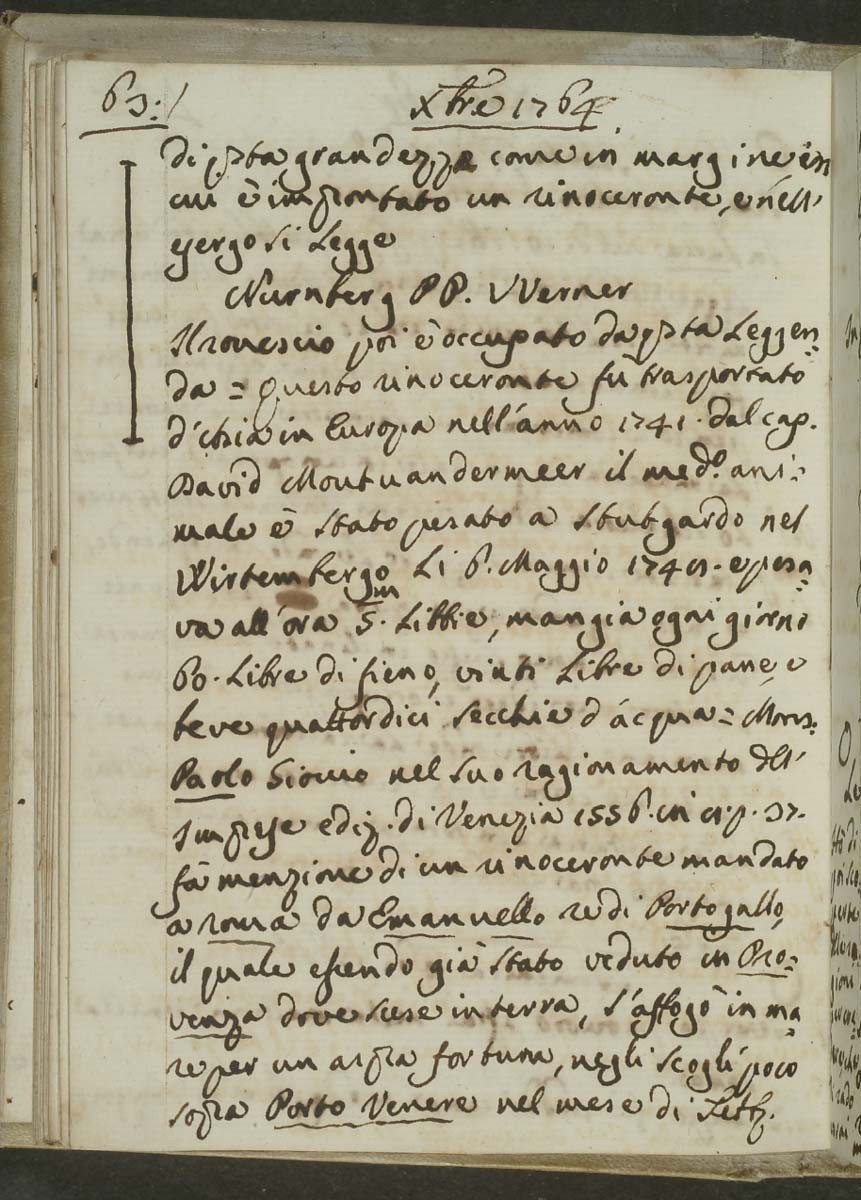 63:/
Xbre 1764.
di qsta grandezza come in margine in
cui è improntato un rinoceronte, e nell'
esergo si Legge
Nurnberg PP. VVerner
Il rovescio poi è occupato da qsta Leggen=
da = Questo rinoceronte fù trasportato
d'Asia in Europa nell'anno 1741. dal cap.
David Moutvandermeer il medo. ani=
male è stato pesato a Stutgardo nel
Wirtembergo Li 6. Maggio 174 e pesa=
va all'ora 5.m Libbre, mangia ogni giorno
60. Libre di fieno, vinti Libre di pane, e
beve quattordici secchie d'acqua = Mons.
Paolo Giovio nel suo ragionamento dell'
Imprese ediz. di Venezia 1556. in p. 37.
fà menzione di un rinoceronte mandato
a roma da Emanuello re di Portogallo,
il quale essendo già stato veduto in Pro=
venza dove scese in terra, s'affogò in ma=
re per un aspra fortuna, negli scogli poco
sopra Porto Venere nel mese di